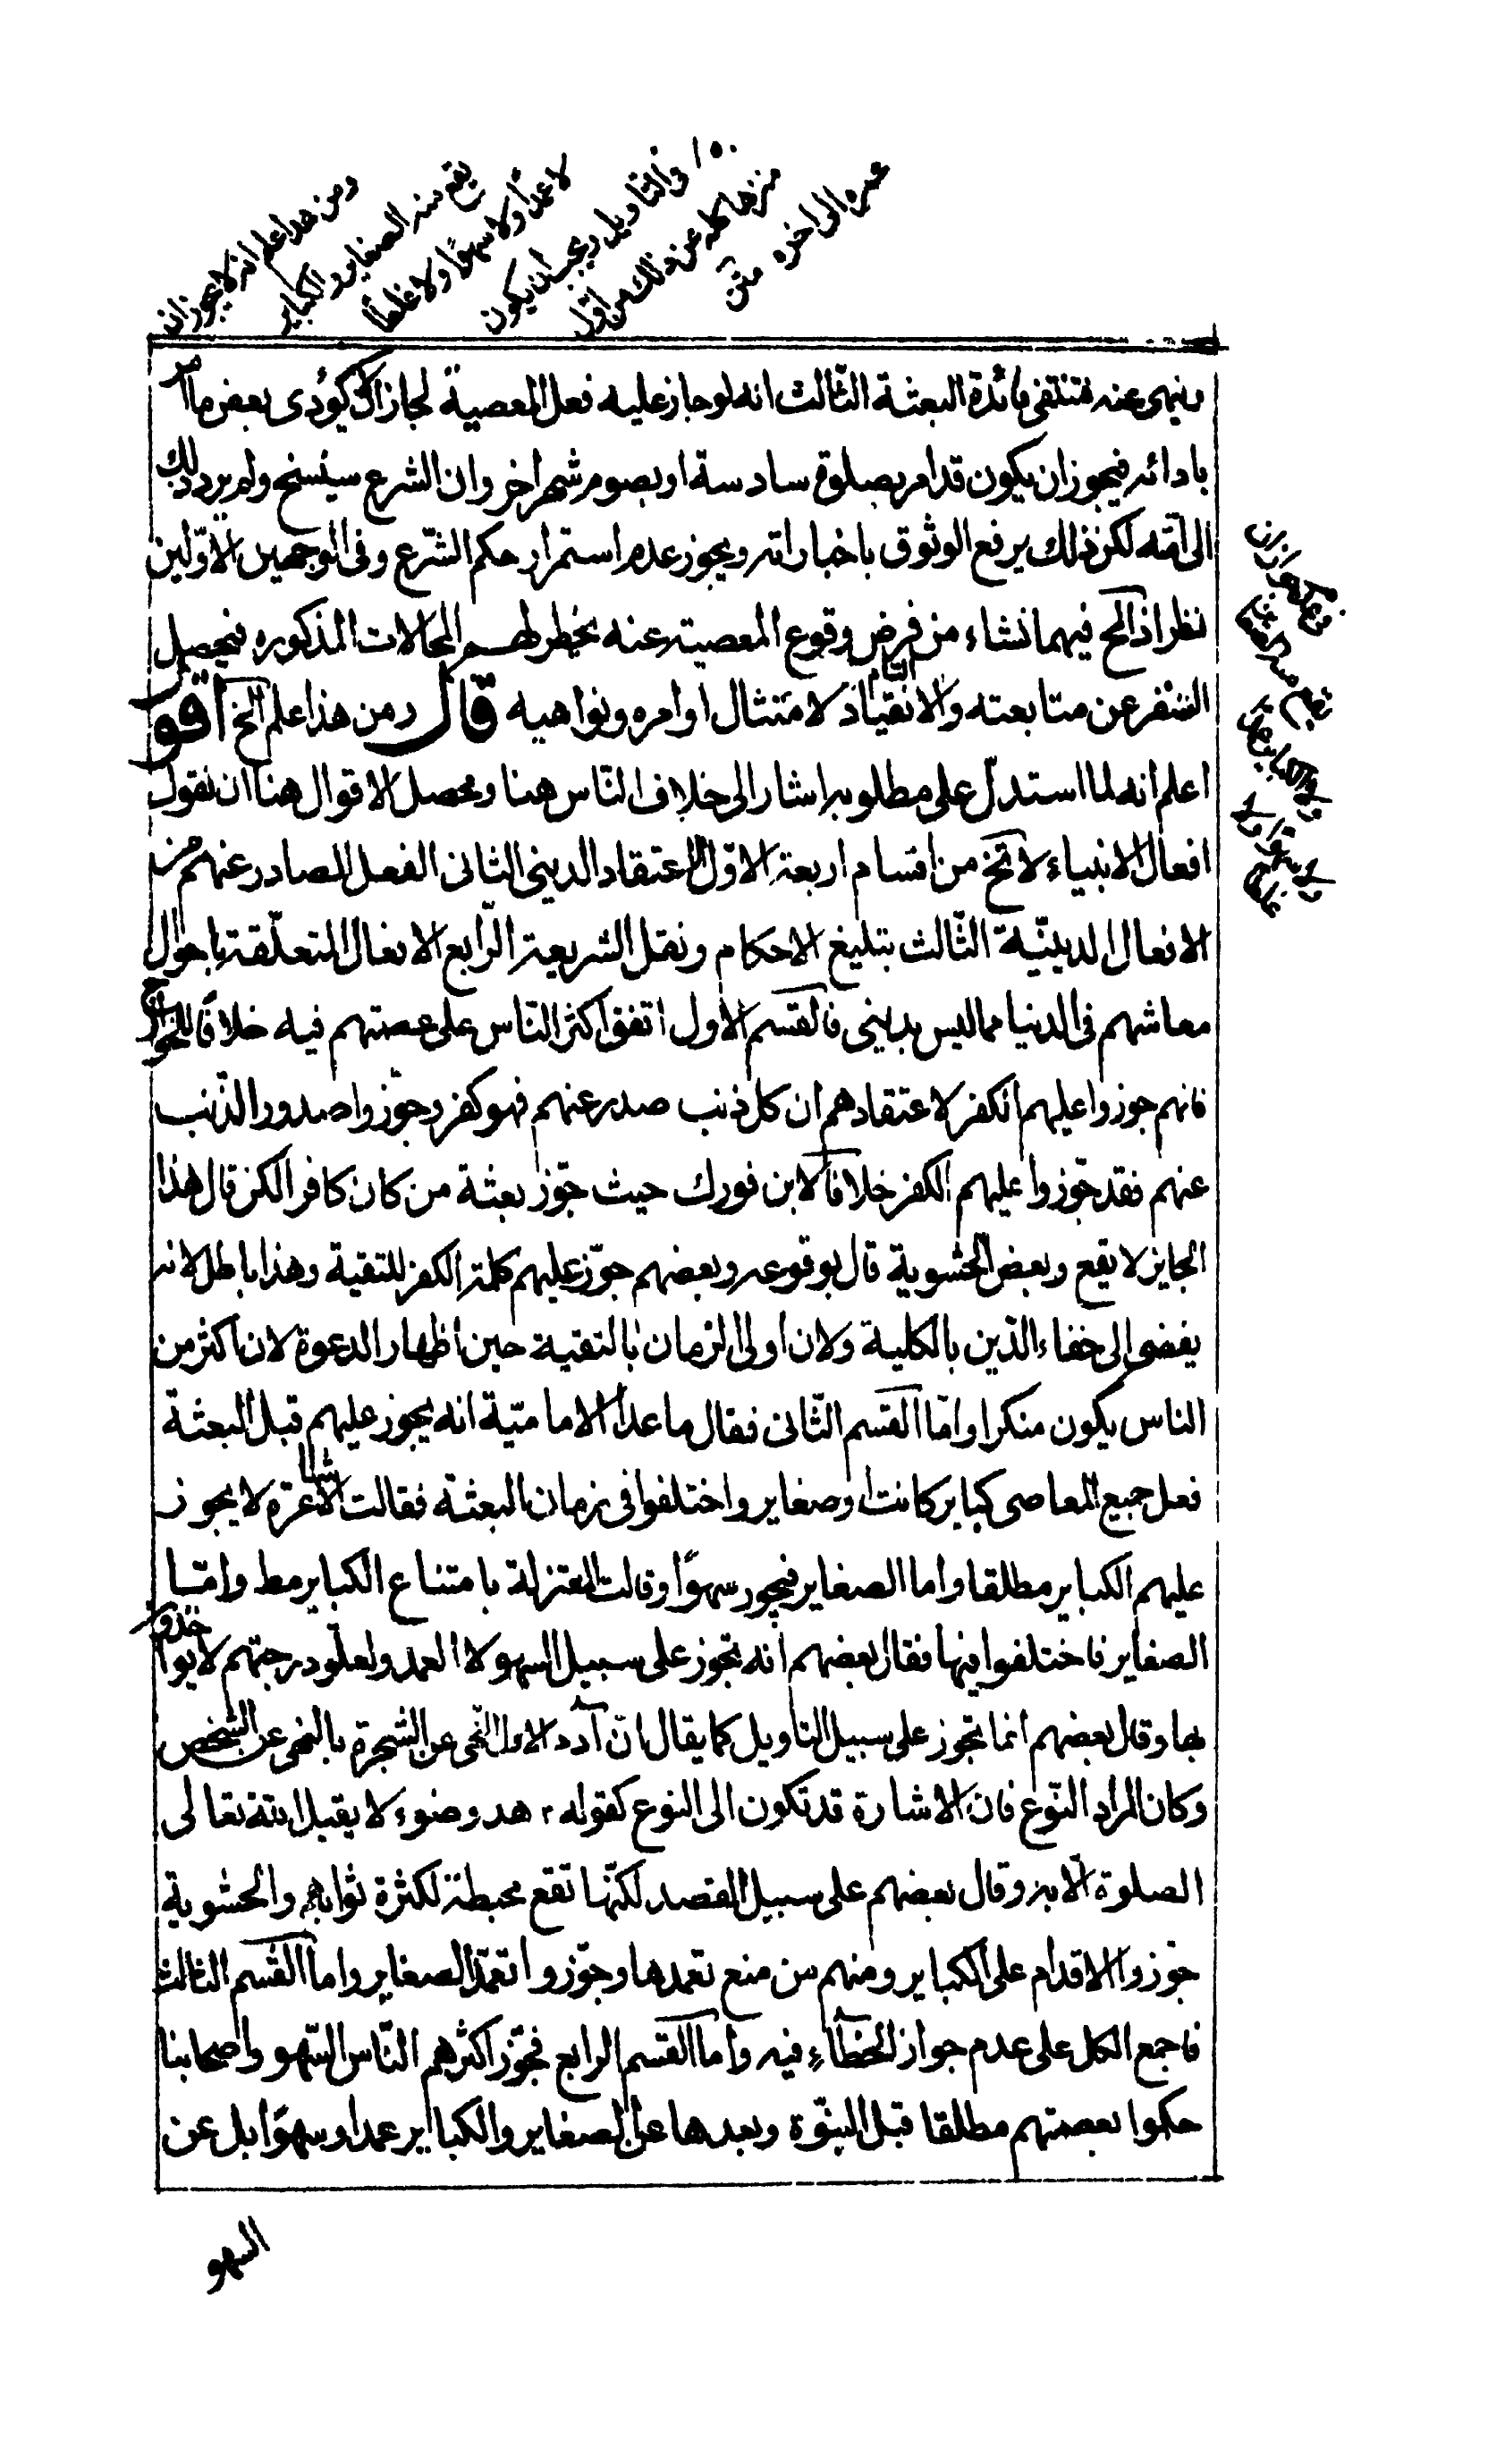 ومن هذا علم انه لا يجوز ان
يقع منه الصغاير والكباير
لا عمدا ولا سهوا ولا غلطا
والتاويل ويجب ان يكون
منزها عن ذلك من اول
عمره الى اخره متن
وينهى عنه فتنتفى فائدة البعثة الثالث انه لو جاز عليه فعل المعصية لجاز ان لا يؤدى بعض ما امر
بادائه فيجوز ان يكون قد امر بصلوة سادسة او بصوم شهر اخر وان الشرع سينسخ ولم يرد ذلك
الى امته لكن ذلك يرفع الوثوق باخباراته ويجوز عدم استمرار حكم الشرع وفى الوجهين الاولين
نظر اذ الح فيهما نشاء من فرض وقوع المعصية عنه يخطر لهم المحالات المذكوره فيحصل
التنفر عن متابعته والانقياد التام لامتثال اوامره ونواهيه قال ومن هذا علم الخ اقو
اعلم انه لما استدل على مطلوبه اشار الى خلاف الناس هنا ومحصل الاقوال هنا ان نقول
افعال الانبياء لا تخ من اقسام اربعة الاول الاعتقاد الدينى الثانى الفعل الصادر عنهم من
الافعال الدينية الثالث بتليغ الاحكام ونقل الشريعة الرابع الافعال المتعلقة باحوال
معاشهم فى الدنيا مما ليس بدينى فالقسم الاول اتفق اكثر الناس على عصمتهم فيه خلافا للخوارج
فانهم جوزوا عليهم الكفر لاعتقادهم ان كل ذنب صدر عنهم فهو كفر وجوزوا صدور الذنب
عنهم فقد جوزوا عليهم الكفر خلافا لابن فورك حيث جوز بعثة من كان كافرا لكن قال هذا
الجايز لا يقع وبعض الحشوية قال بوقوعه وبعضهم جوز عليهم كلمة الكفر للتقية وهذا باطل لانه
يفضى الى خفاء الدين بالكلية ولان اولى الزمان بالتقية حين اظهار الدعوة لان اكثر من
الناس يكون منكرا واما القسم الثانى فقال ما عدا الامامية انه يجوز عليهم قبل البعثة
فعل جميع المعاصى كباير كانت او صغاير واختلفوا فى زمان البعثة فقالت الاشاعرة لا يجوز
عليهم الكباير مطلقا واما الصغاير فيجوز سهوا وقالت المعتزلة بامتناع الكباير مط واما
الصغاير فاختلفوا فيها فقال بعضهم انه تجوز على سبيل السهو لا العمد ولعلو درجتهم لا يواخذوا
بها وقال بعضهم انما تجوز على سبيل التاويل كما يقال ان آدم اول النهى عن الشجرة بالنهى عن الشخص
وكان المراد النوع فان الاشارة قد تكون الى النوع كقوله هذ وضوء لا يقبل الله تعالى
الصلوة الا به وقال بعضهم على سبيل القصد لكنها تقع محبطة لكثرة ثوابهم والحشوية
جوزوا الاقدام على الكباير ومنهم من منع تعمدها وجوزوا تعمد الصغاير واما القسم الثالث
فاجمع الكل على عدم جواز الخطاء فيه واما القسم الرابع فجوز اكثرهم الناس السهو واصحابنا
حكموا بعصمتهم مطلقا قبل النبوة وبعدها عن الصغاير والكباير عمدا وسهوا بل عن
السهو